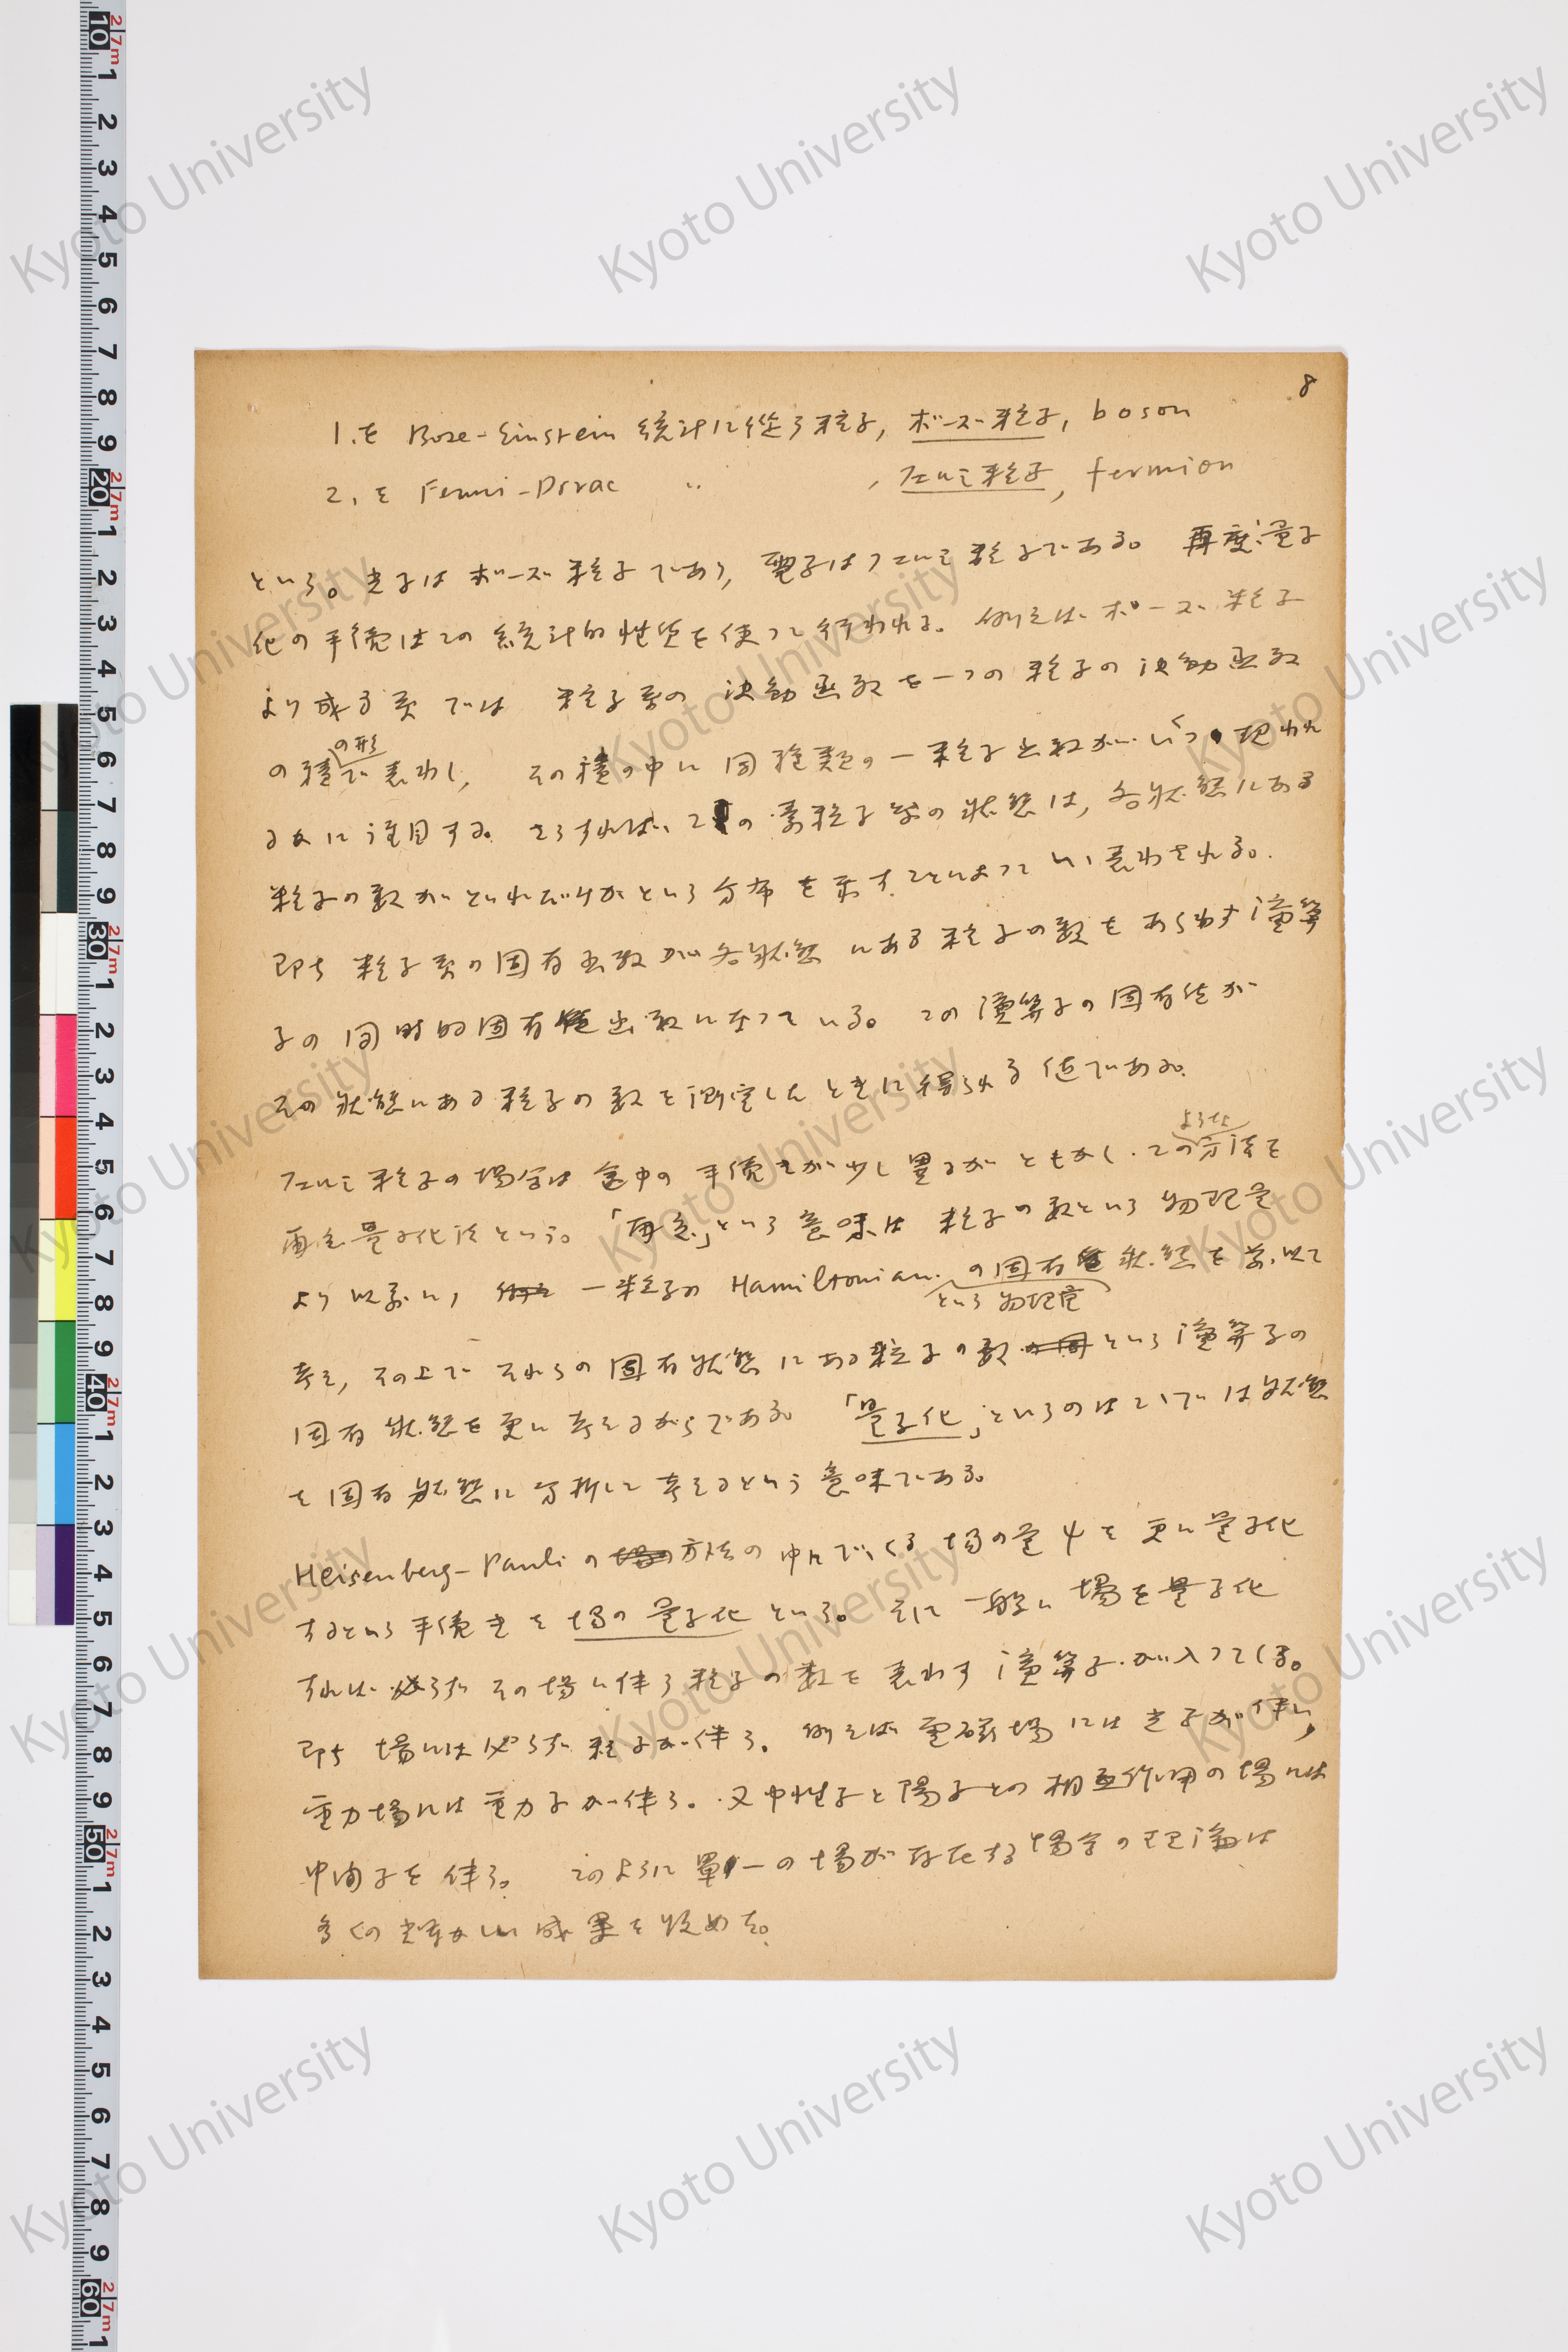 8
1. を Bose-Einstein 統計に従う粒子, ボーズ粒子, boson
2. を Fermi-Dirac 〃 , フェルミ粒子, fermion
という。光子はボーズ粒子であり, 電子はフェルミ粒子である。 再度量子
化の手続はこの統計的性質を使って行われる。例えばボーズ粒子
より成る系では 粒子系の波動函数を一つの粒子の波動函数
の形
の積で表わし, その積の中に同種類の一粒子函数がいくつ現われ
るかに注目する。そうすれば、この素粒子系の状態は, 各状態にある
粒子の数がどれだけかという分布を示すことによつていい表わされる。
即ち粒子系の固有函数が各状態にある粒子の数をあらわす演算
子の同時的固有函数になつている。この演算子の固有値が
その状態にある粒子の数を測定したときに得られる値である。
ような
フェルミ粒子の場合は途中の手続きが少し異るがともかくこの方法を
再度量子化法という。「再度」という意味は粒子の数という物理量
より以前に, 一粒子の Hamiltonian の固有状態を
という物理量
考え, その上でそれらの固有状態にある粒子の数という演算子の
固有状態を更に考えるからである。「量子化」というのはここでは状態
を固有状態に分析して考えるという意味である。
Heisenberg-Pauli の方法の中にでてくる場の量 ψ を更に量子化
するという手続きを場の量子化という。 一般に場を量子化
すれば必らずその場に伴う粒子の数を表わす演算子が入つてくる。
即ち場には必らず粒子が伴う。例えば電磁場には光子が伴い,
重力場には重力子が伴う。又中性子と陽子との相互作用の場には
中間子を伴う。 このように單一の場が存在する場合の理論は
多くの輝かしい成果を收めた。
Kyoto University